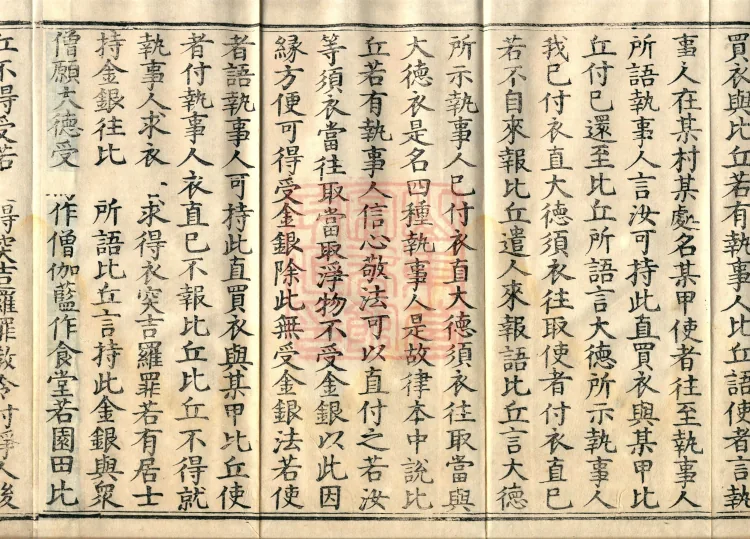 買衣與比丘若有執事人比丘語使者言執
事人在某村某處名某甲使者往至執事人
所語執事人言汝可持此直買衣與某甲比
丘付已還至比丘所語言大德所示執事人
我已付衣直大德須衣往取使者付衣直已
若不自來報比丘遣人來報語比丘言大德
所示執事人已付衣直大德須衣往取當與
大德衣是名四種執事人是故律本中說比
丘若有執事人信心敬法可以直付之若汝
等須衣當往取當取淨物不受金銀以此因
緣方便可得受金銀除此無受金銀法若使
者語執事人可持此直買衣與某甲比丘使
者付執事人衣直已不報比丘比丘不得就
執事人求衣求得衣突吉羅罪若有居士
持金銀往比所語比丘言持此金銀與衆
僧願大德受作僧伽藍作食堂若園田比
丘不得受若得突吉羅罪